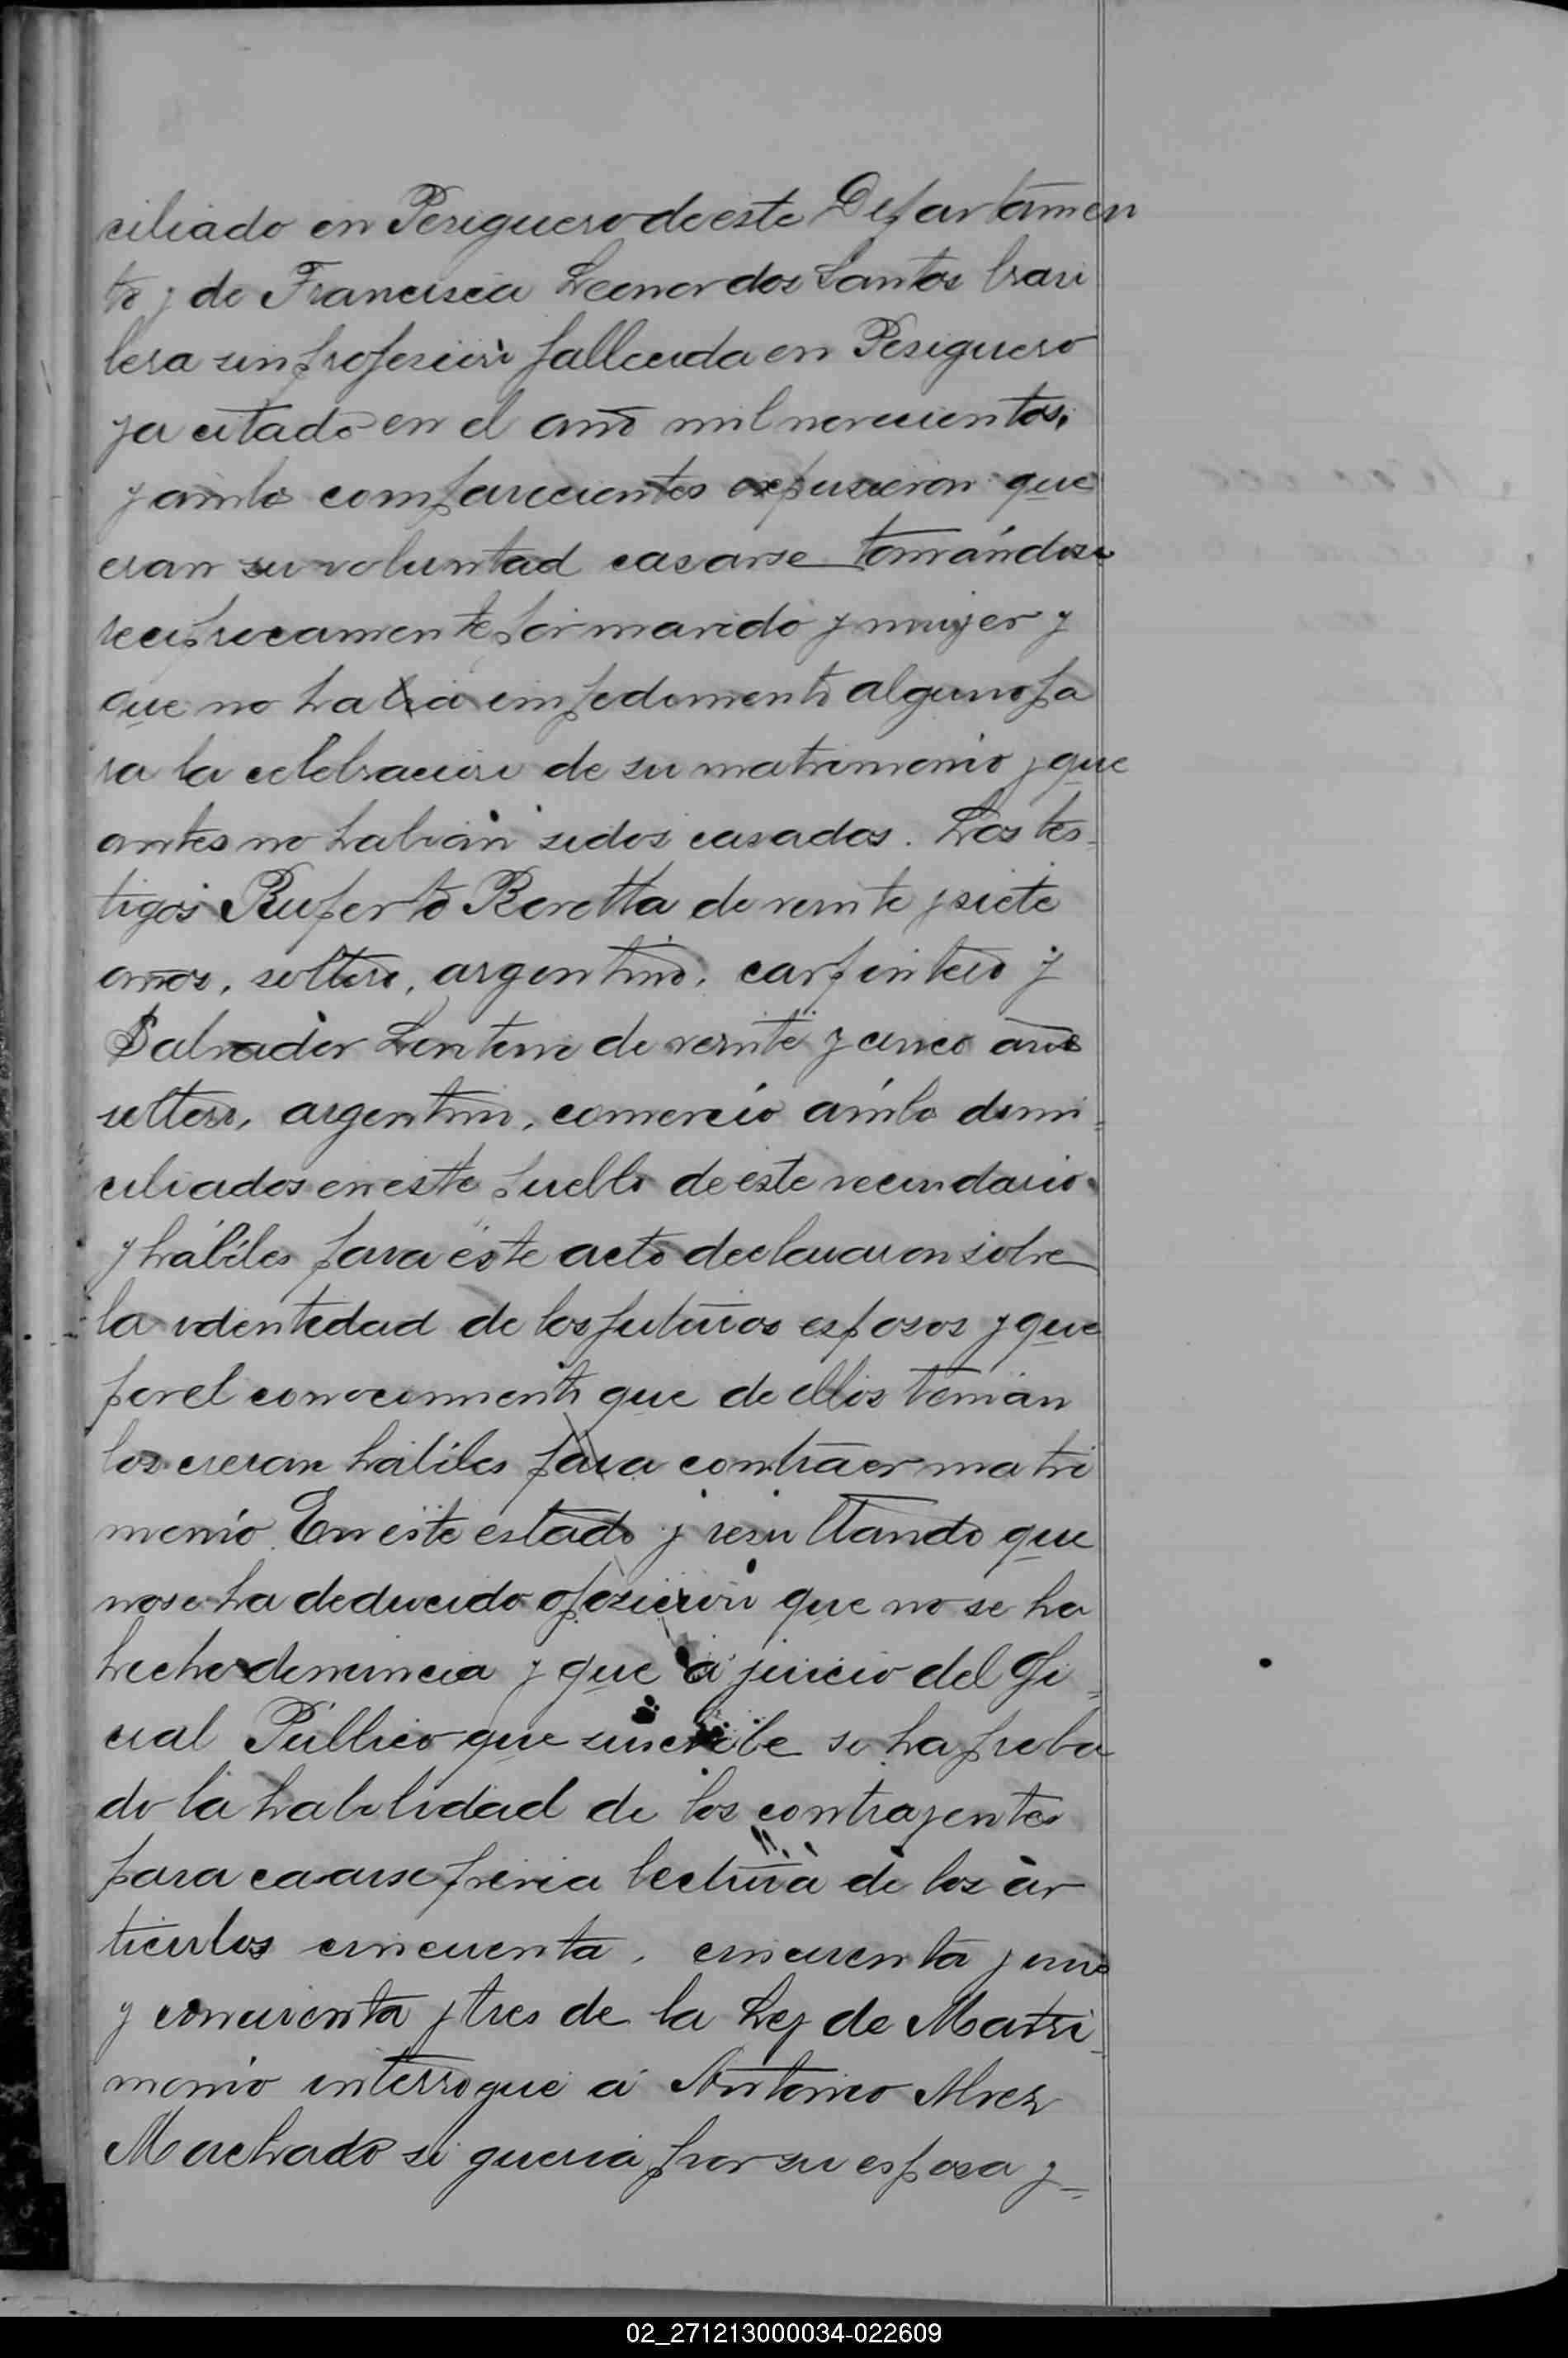 ciliado en Periguero de este Departamen
to y de Francisca Leonor dos Santos brasi
lera sin profesión fallecida en Periguero
ya citado en el año mil novecientos,
y ambos comparecientes expusieron que
eran su voluntad casarse tomándose
recíprocamente por marido y mujer y
que no había impedimento alguno pa
ra la celebración de su matrimonio y que
antes no habían sidos casados. Los tes-
tigos Ruperto Beretta de veinte y siete
años, soltero, argentino, carpintero y
Salvador de veinte y cinco años
soltero, argentino, comercio ambos domi-
ciliados en este pueblo de este vecindario
y hábiles para éste acto declararon sobre
la identidad de los futuros esposos y que
por el conocimiento que de ellos tenían
los creían hábiles para contraer matri
monio. En este estado y resultando que
no se ha deducido oposición que no se ha
hecho denuncia y que á juicio del Ofi-
cial Público que suscribe se ha proba
do la habilidad de los contrayentes
para casarse previa lectura de los ar
tículos cincuenta, cincuenta y uno
y cincuenta y tres de la Ley de Matri-
monio interrogué á Antonio Alvez
Machado si quería por su esposa y-
02_271213000034-022609